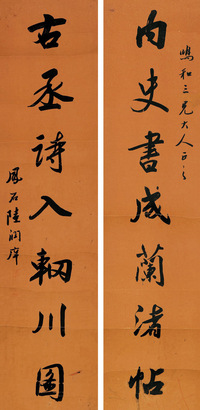 鳴和三兄大人正之
内史書成蘭渚帖
右丞詩入輞川圖
鳳石陸潤庠